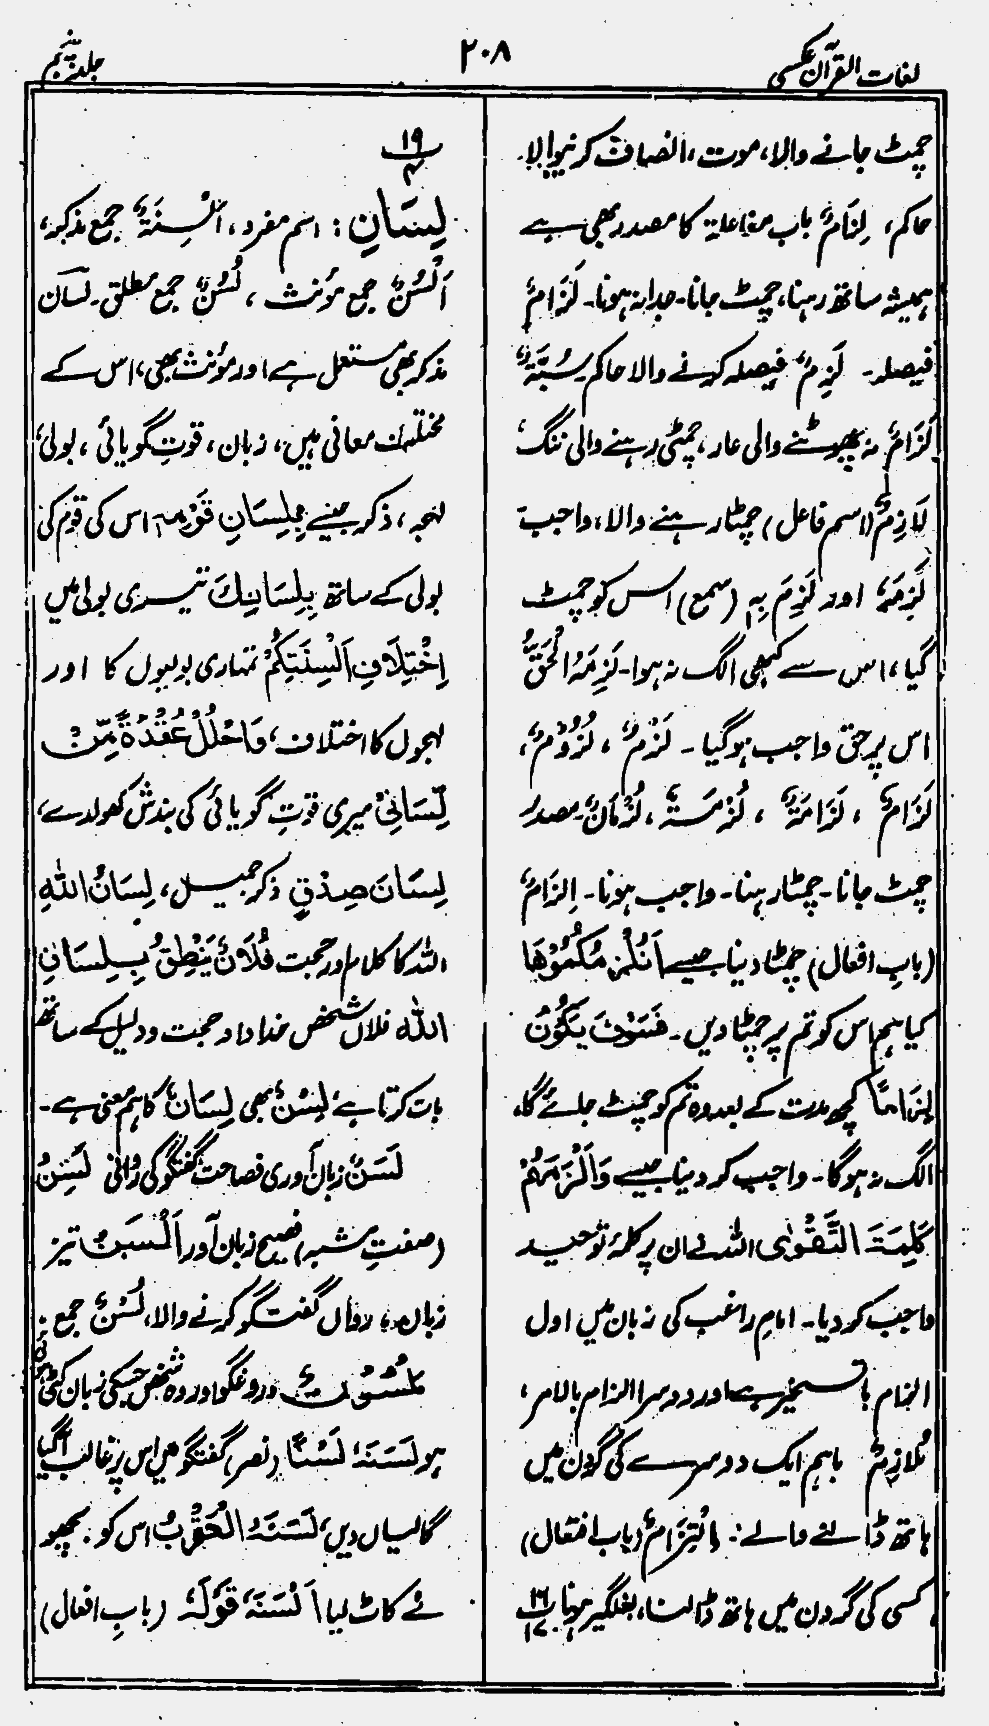 لغات القرآن عکسی
۲۰۸
جلد پنجم
چمٹ جانے والا، موت، انصاف کرنیوالا۔
حاکم، لِزَامٌ باب مفاعلۃ کا مصدر بھی ہے
ہمیشہ ساتھ رہنا، چمٹ جانا۔ جدا نہ ہونا۔ لَزَامٌ
فیصلہ۔ لَزِمٌ فیصلہ کرنے والا حاکم سُبَّۃٌ
لَزَامٌ نہ چھوٹنے والی عار، چمٹی رہنے والی ننگ
لَازِمٌ (اسم فاعل) چمٹا رہنے والا، واجب
لَزِمَہٗ اور لَزِمَ بِہٖ (سمع) اس کو چمٹ
گیا، اس سے کبھی الگ نہ ہوا۔ لَزِمَہُ الْحَقُّ
اس پر حق واجب ہوگیا۔ لَزْمٌ ، لُزُوْمٌ ،
لَزَامٌ ، لَزَامَۃٌ ، لُزْمَۃٌ ، لُزْمَانٌ۔ مصدر
چمٹ جانا۔ چمٹا رہنا۔ واجب ہونا۔ اِلْزَامٌ
(بابِ افعال) چمٹا دینا جیسے اَنُلْزِمُكُمُوْهَا
کیا ہم اس کو تم پر چمٹا دیں۔ فَسَوْفَ يَكُوْنُ
لِزَامًا کچھ مدت کے بعد وہ تم کو چمٹ جائے گا،
الگ نہ ہوگا۔ واجب کر دینا جیسے وَاَلْزَمَهُمْ
كَلِمَةَ التَّقْوٰى اللہ نے ان پر کلمۂ توحید
واجب کر دیا۔ امام راغب کی زبان میں اول
الزام بالتسخیر ہے اور دوسرا الزام بالامر،
مُلَازِمٌ باہم ایک دوسرے کی گردن میں
ہاتھ ڈالنے والے: اِلْتِزَامٌ (باب افتعال)
کسی کی گردن میں ہاتھ ڈالنا، بغلگیر ہونا ۱۶ ۱۷
۱۹
لِسَانٍ: اسم مفرد، اَلْسِنَۃٌ جمع مذکر،
اَلْسُنٌ جمع مؤنث ، لُسُنٌ جمع مطلق۔ لسان
مذکر بھی مستعمل ہے اور مؤنث بھی، اس کے
مختلف معانی ہیں، زبان، قوتِ گویائی ، بولی
لہجہ ، ذکر جیسے بِلِسَانِ قَوْمِهٖ اس کی قوم کی
بولی کے ساتھ بِلِسَانِكَ تیری بولی میں
اِخْتِلَافُ اَلْسِنَتِكُمْ تمہاری بولیوں کا اور
لہجوں کا اختلاف، وَاحْلُلْ عُقْدَةً مِّنْ
لِّسَانِيْ میری قوتِ گویائی کی بندش کھولدے،
لِسَانَ صِدْقٍ ذکر جمیل، لِسَانُ اللّٰهِ
اللہ کا کلام اور حجت فُلَانٌ يَنْطِقُ بِلِسَانِ
اللّٰهِ فلاں شخص خداداد حجت و دلیل کے ساتھ
بات کرتا ہے لِسْنٌ بھی لِسَانٌ کا ہم معنی ہے۔
لَسَنٌ زبان آوری فصاحت گفتگو کی روانی لَسِنٌ
(صفتِ مشبہ) فصیح زبان آور اَلْسَنُ تیز
زبان، رواں گفتگو کرنے والا، لُسْنٌ جمع :
مَلْسُوْنٌ دروغگو اور وہ شخص جسکی زبان کٹی ہوئی
ہو لَسَنَہٗ لَسْنًا (نصر) گفتگو میں اس پر غالب آگیا
گالیاں دیں، لَسَنَتْہُ الْعَقْرَبُ اس کو بچھو
نے کاٹ لیا اَلْسَنَہٗ قَوْلَہٗ (بابِ افعال)